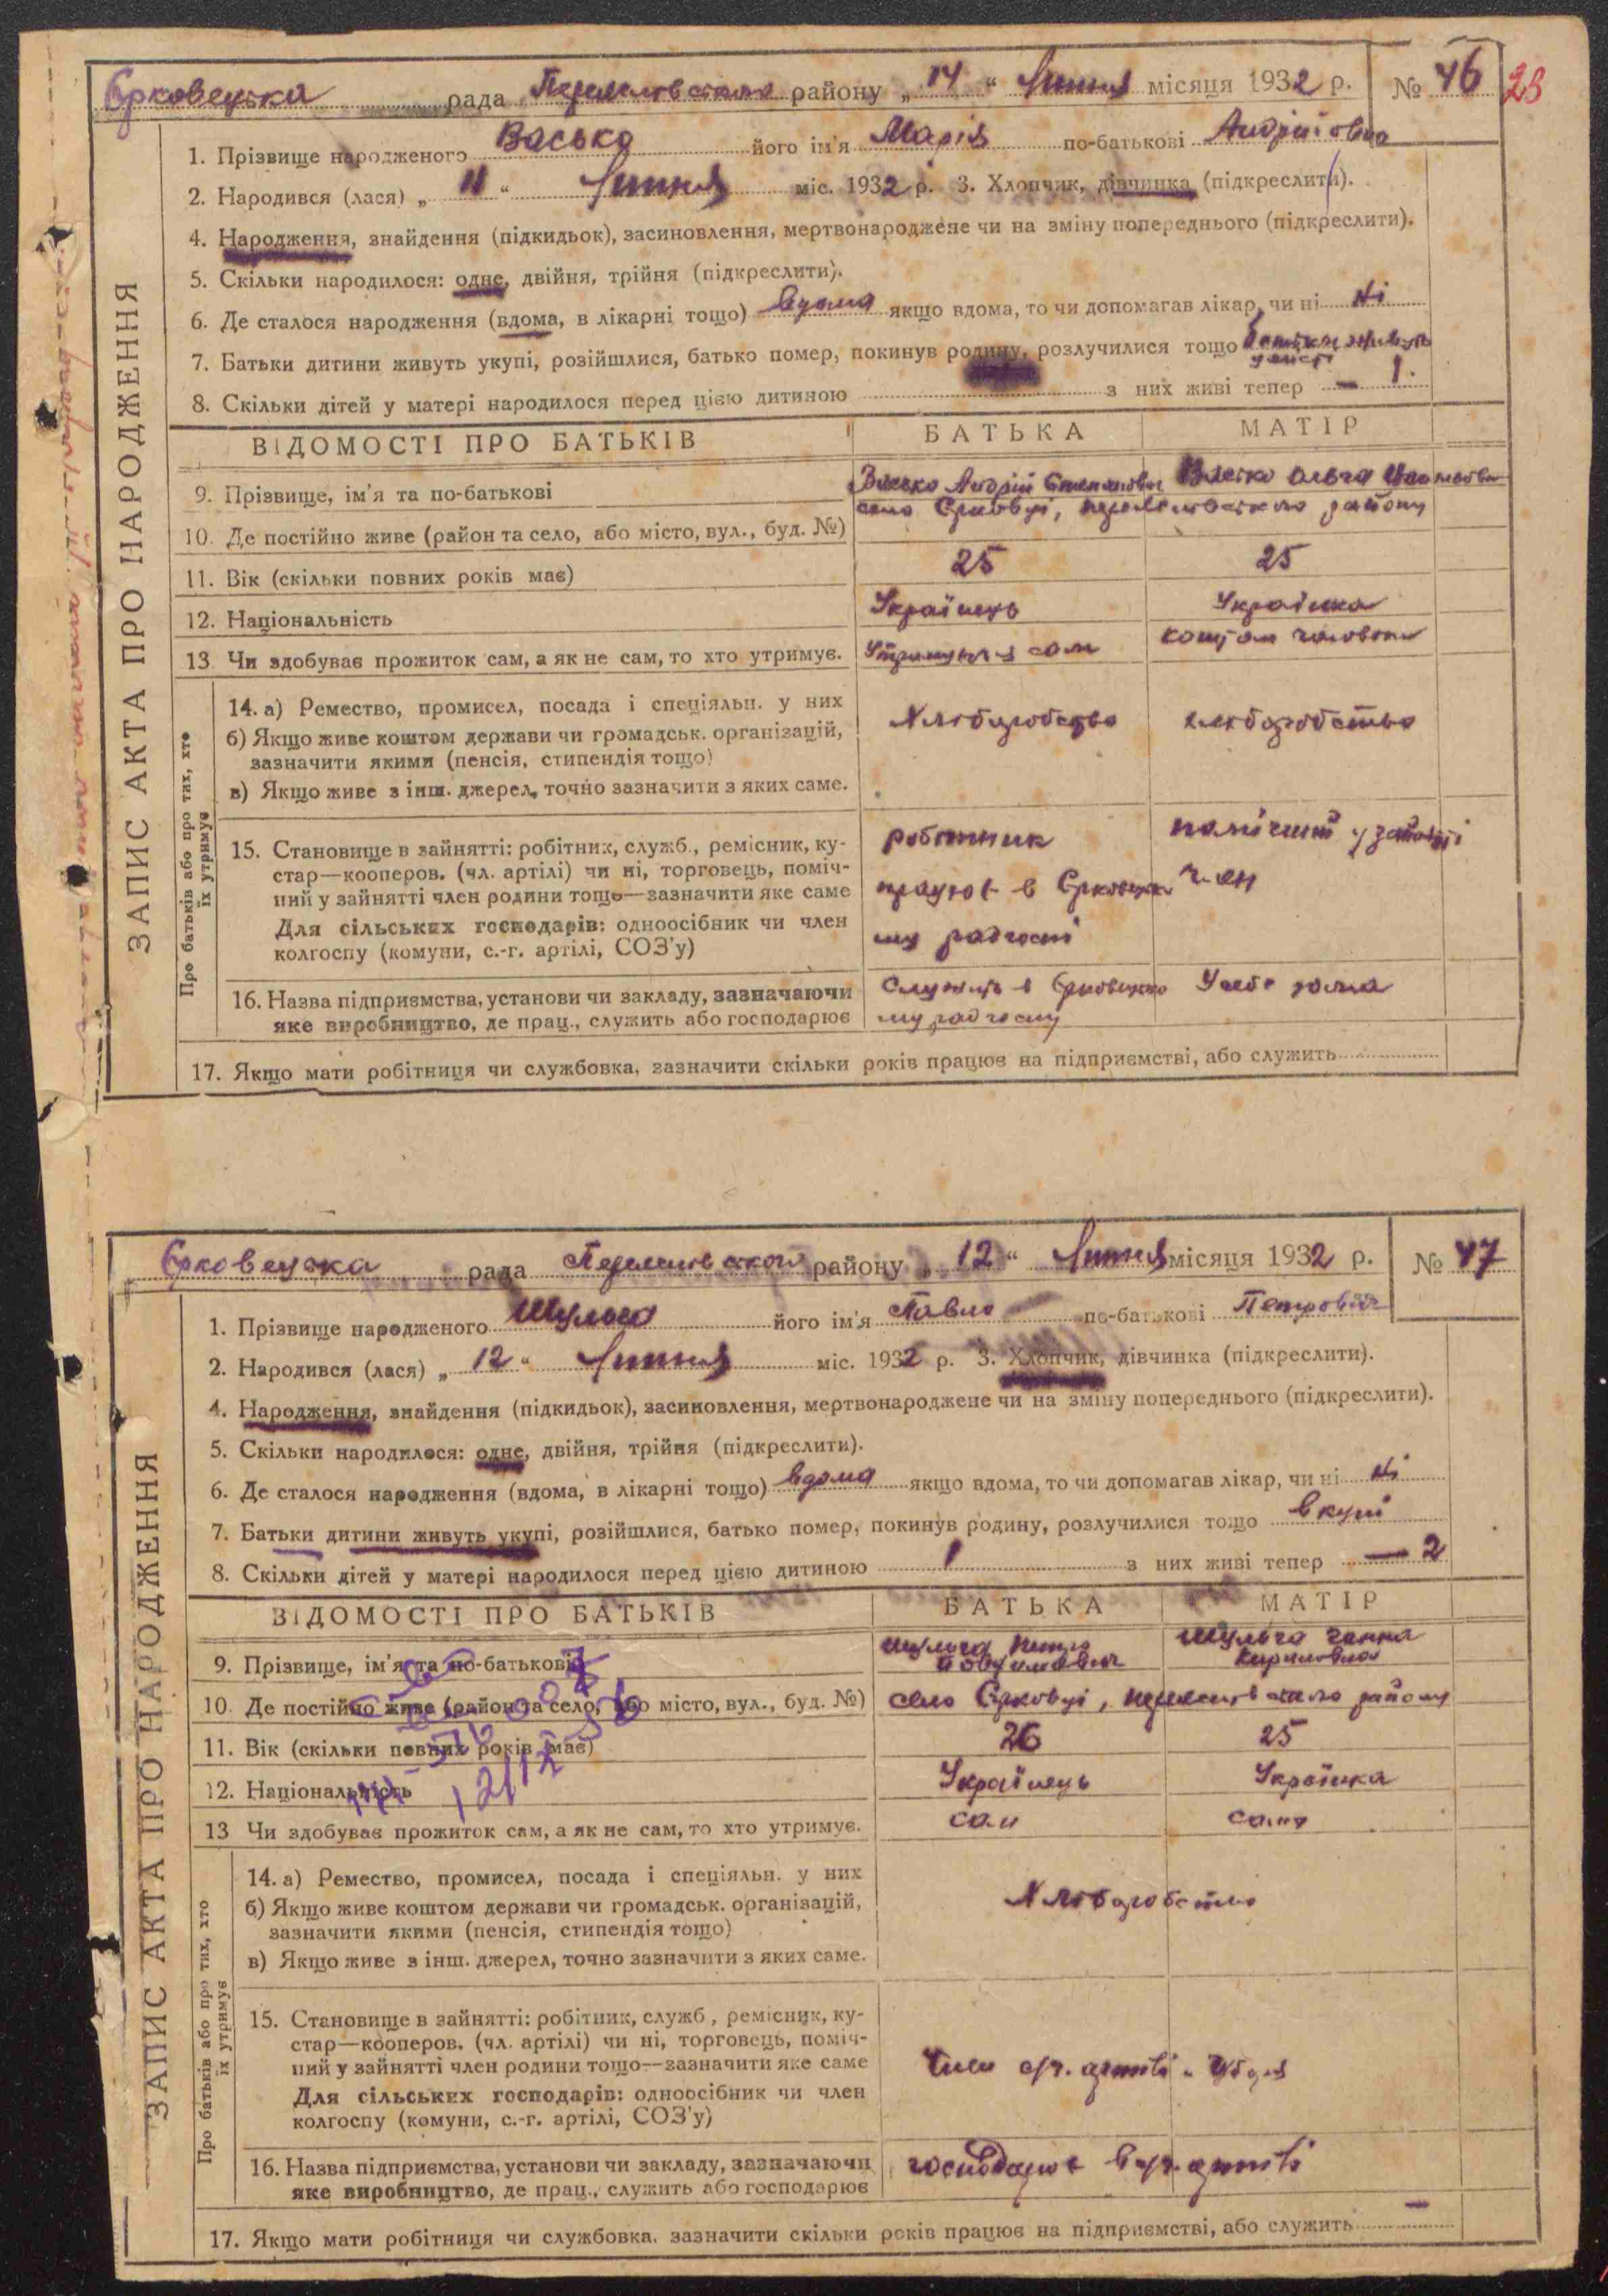 Єрковецька рада Переяслівського району „14“ Липня місяця 1932 р. № 46 23
ЗАПИС АКТА ПРО НАРОДЖЕННЯ
1. Прізвище народженого Васько його ім'я Марія по-батькові Андріївна
2. Народився (лася) „11“ Липня міс. 1932 р. 3. Хлопчик, дівчинка (підкреслити).
4. Народження, знайдення (підкидьок), засиновлення, мертвонароджене чи на зміну попереднього (підкреслити).
5. Скільки народилося: одне, двійня, трійня (підкреслити).
6. Де сталося народження (вдома, в лікарні тощо) вдома якщо вдома, то чи допомагав лікар, чи ні ні
7. Батьки дитини живуть укупі, розійшлися, батько помер, покинув родину, розлучилися тощо батьки живуть
8. Скільки дітей у матері народилося перед цією дитиною з них живі тепер — 1.
ВІДОМОСТІ ПРО БАТЬКІВ БАТЬКА МАТІР
9. Прізвище, ім'я та по-батькові Васько Андрій Степанович Васько Ольга
10. Де постійно живе (район та село, або місто, вул., буд. №) село Єрковці, Переяслівського району
11. Вік (скільки повних років має) 25 25
12. Національність Українець Українка
13 Чи здобуває прожиток сам, а як не сам, то хто утримує. Утримується сам коштом чоловіка
Про батьків або про тих, хто їх утримує
14. а) Ремество, промисел, посада і спеціяльн. у них Хліборобство хліборобство
б) Якщо живе коштом держави чи громадськ. організацій,
зазначити якими (пенсія, стипендія тощо)
в) Якщо живе з інш. джерел, точно зазначити з яких саме.
15. Становище в зайнятті: робітник, служб., ремісник, ку- робітник помічний у занятті
стар—кооперов. (чл. артілі) чи ні, торговець, поміч- працює в Єрковецько член
ний у зайнятті член родини тощо—зазначити яке саме
Для сільських господарів: одноосібник чи член му радгоспі
колгоспу (комуни, с.-г. артілі, СОЗ'у)
16. Назва підприємства, установи чи закладу, зазначаючи Служить в Єрковецько У себе дома
яке виробництво, де прац., служить або господарює му радгоспу
17. Якщо мати робітниця чи службовка, зазначити скільки років працює на підприємстві, або служить
Єрковецька рада Переяслівського району „12“ Липня місяця 1932 р. № 47
ЗАПИС АКТА ПРО НАРОДЖЕННЯ
1. Прізвище народженого Шульга його ім'я Павло по-батькові Петрович
2. Народився (лася) „12“ Липня міс. 1932 р. 3. Хлопчик, дівчинка (підкреслити).
4. Народження, знайдення (підкидьок), засиновлення, мертвонароджене чи на зміну попереднього (підкреслити).
5. Скільки народилося: одне, двійня, трійня (підкреслити).
6. Де сталося народження (вдома, в лікарні тощо) вдома якщо вдома, то чи допомагав лікар, чи ні ні
7. Батьки дитини живуть укупі, розійшлися, батько помер, покинув родину, розлучилися тощо вкупі
8. Скільки дітей у матері народилося перед цією дитиною 1 з них живі тепер — 2
ВІДОМОСТІ ПРО БАТЬКІВ БАТЬКА МАТІР
9. Прізвище, ім'я та по-батькові Шульга Петро Шульга Ганна Кирилівна
10. Де постійно живе (район та село, або місто, вул., буд. №) село Єрковці, Переяслівського району
11. Вік (скільки повних років має) 26 25
12. Національність Українець Українка
13 Чи здобуває прожиток сам, а як не сам, то хто утримує. сам сама
Про батьків або про тих, хто їх утримує
14. а) Ремество, промисел, посада і спеціяльн. у них
б) Якщо живе коштом держави чи громадськ. організацій, Хліборобство
зазначити якими (пенсія, стипендія тощо)
в) Якщо живе з інш. джерел, точно зазначити з яких саме.
15. Становище в зайнятті: робітник, служб., ремісник, ку-
стар—кооперов. (чл. артілі) чи ні, торговець, поміч-
ний у зайнятті член родини тощо—зазначити яке саме Член с/г. артілі
Для сільських господарів: одноосібник чи член
колгоспу (комуни, с.-г. артілі, СОЗ'у)
16. Назва підприємства, установи чи закладу, зазначаючи господарює в с/г. артілі
яке виробництво, де прац., служить або господарює
17. Якщо мати робітниця чи службовка, зазначити скільки років працює на підприємстві, або служить —